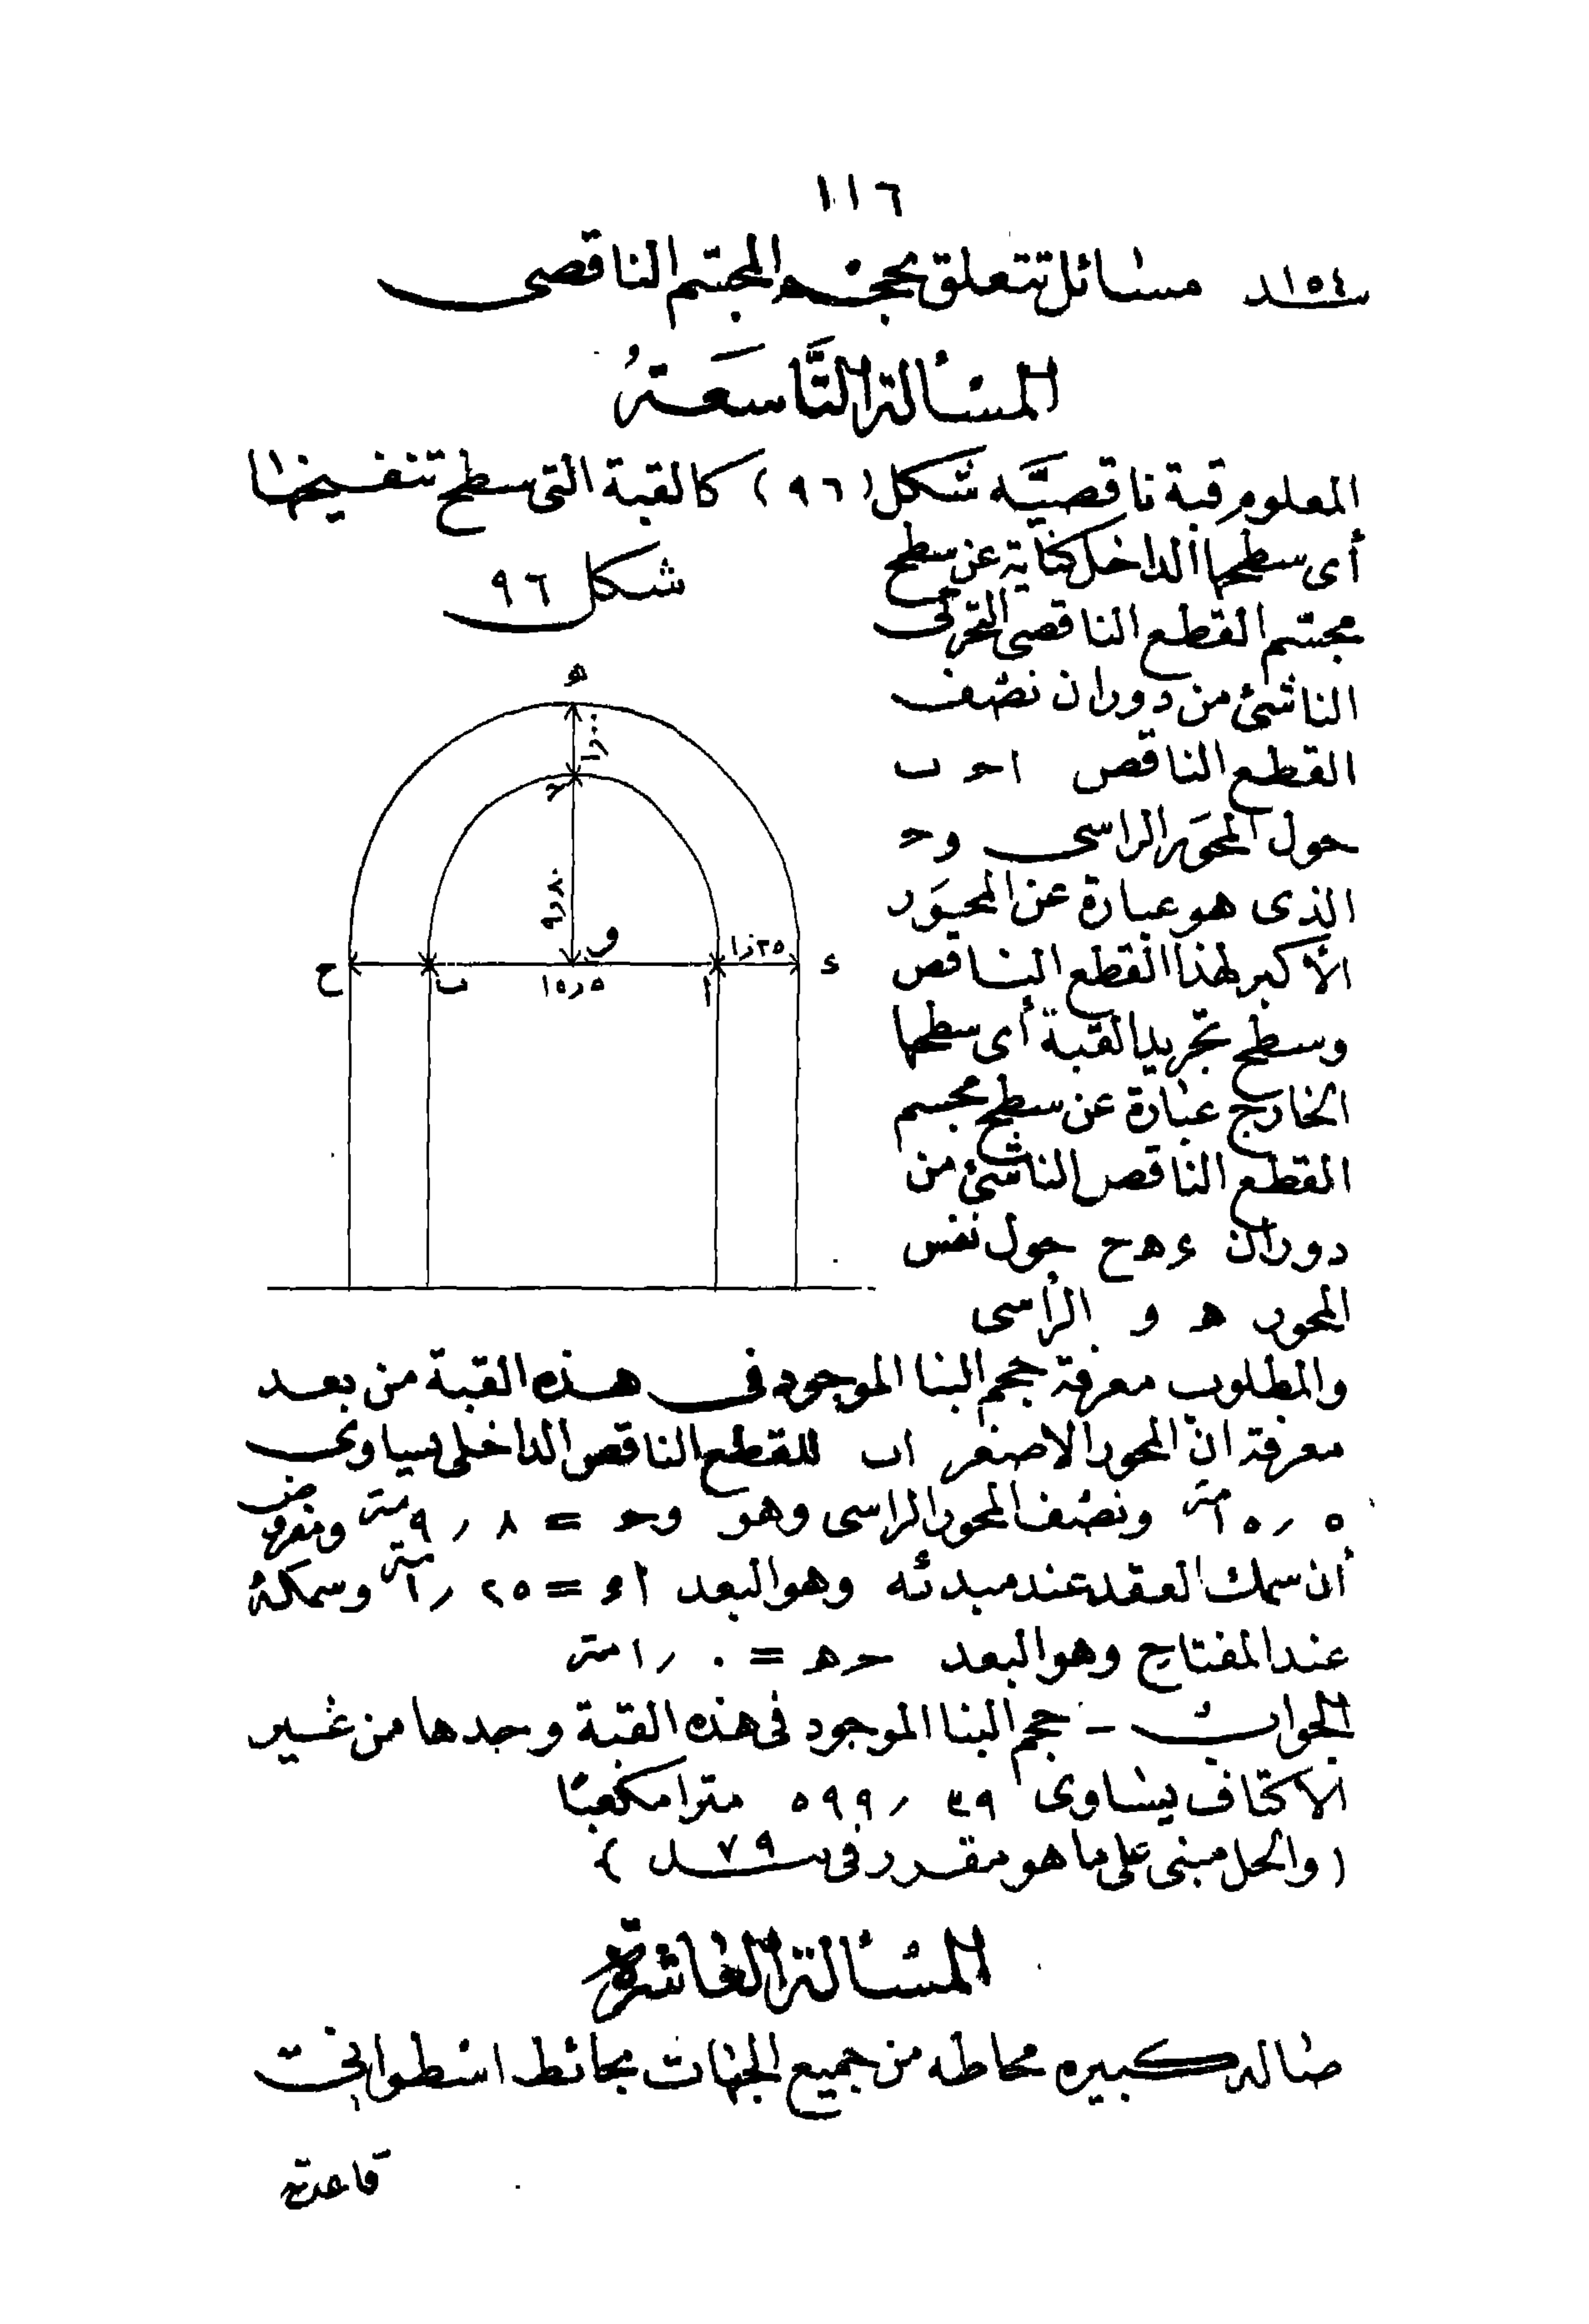 ١١٦
سـ١٥٤ـد مسائل تتعلق بحجم المجسم الناقصى
المسألة التاسعة
المعلوم قبة ناقصيه شكل (٩٦) كالقبة التى سطح تنفيخها
أى سطحها الداخل كناية عن سطح
شكل ٩٦
مجسم القطع الناقصى
الناشئ من دوران نصف
القطع الناقص احـ ب
حول المحور الراسى وحـ
الذى هو عبارة عن المحور
الأكبر لهذا القطع الناقص
وسطح تجريد القبة أى سطحها
الخارج عبارة عن سطح مجسم
القطع الناقص الناشئ من
دوران ء ه ح حول نفس
المحور ه و الرأسى
ه
١٫٠٠
حـ
٩٫٨٠
و
١٫٢٥
ء
ا
١٥٫٥
ب
ح
والمطلوب معرفة حجم البنا الموجود فى هذه القبة من بعد
معرفة ان المحور الاصغر اب للقطع الناقص الداخلى يساوى
١٥٫٥ متر ونصف المحور الراسى وهو وحـ = ٩٫٨ متر ومفروض
أن سمك العقد عند مبدئه وهو البعد اء = ١٫٢٥ متر وسمكه
عند المفتاح وهو البعد حـ ه = ١٫٠ متر
الجواب - حجم البنا الموجود فى هذه القبة وحدها من غير
الاكتاف يساوى ٥٩٩٫٣٩ مترا مكعبا
(والحل مبنى على ما هو مقرر فى سـ٧٩ـد)
المسألة العاشرة
صاله كبيره محاطه من جميع الجهات بحائط اسطوانى
قاعدته